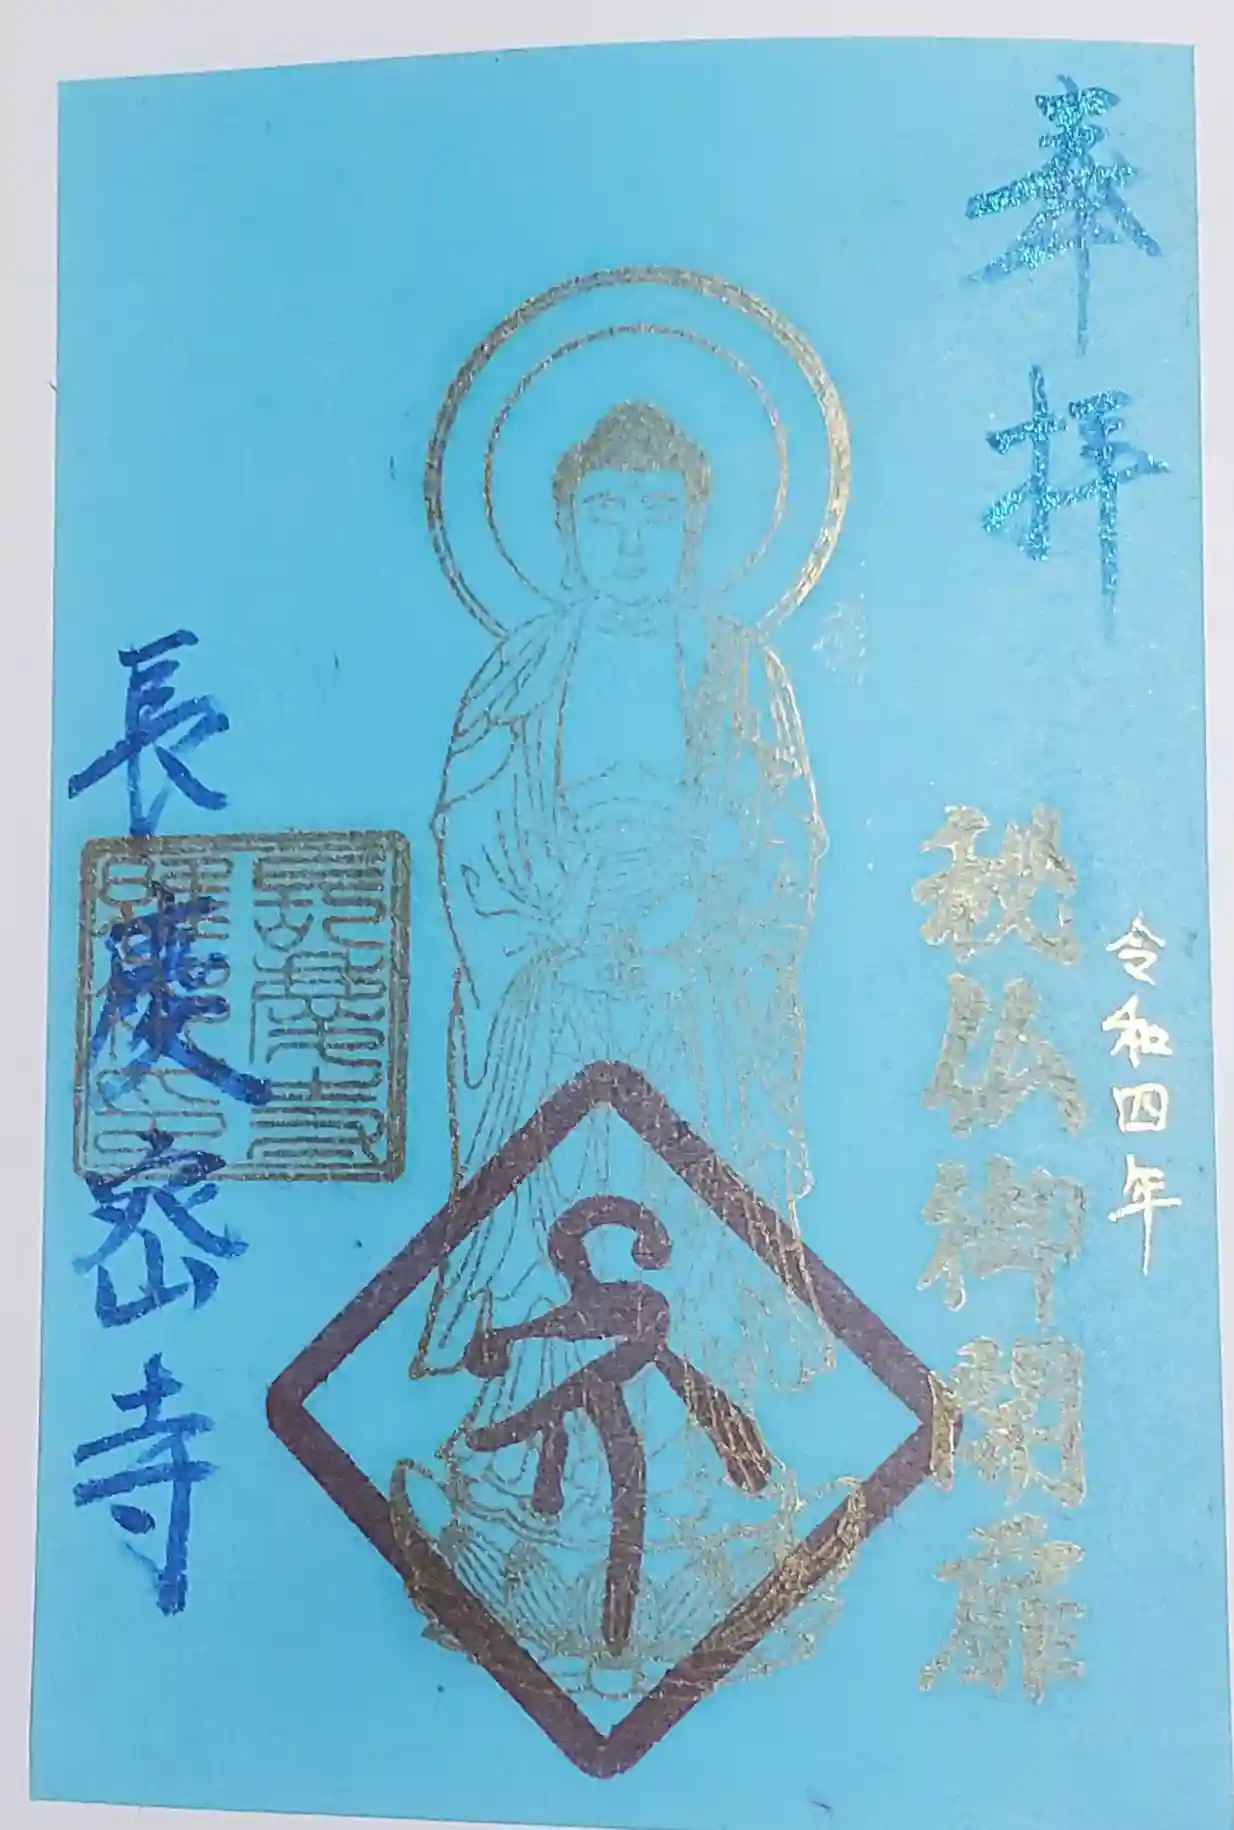 奉拝
令和四年
秘仏御開扉
長慶密寺